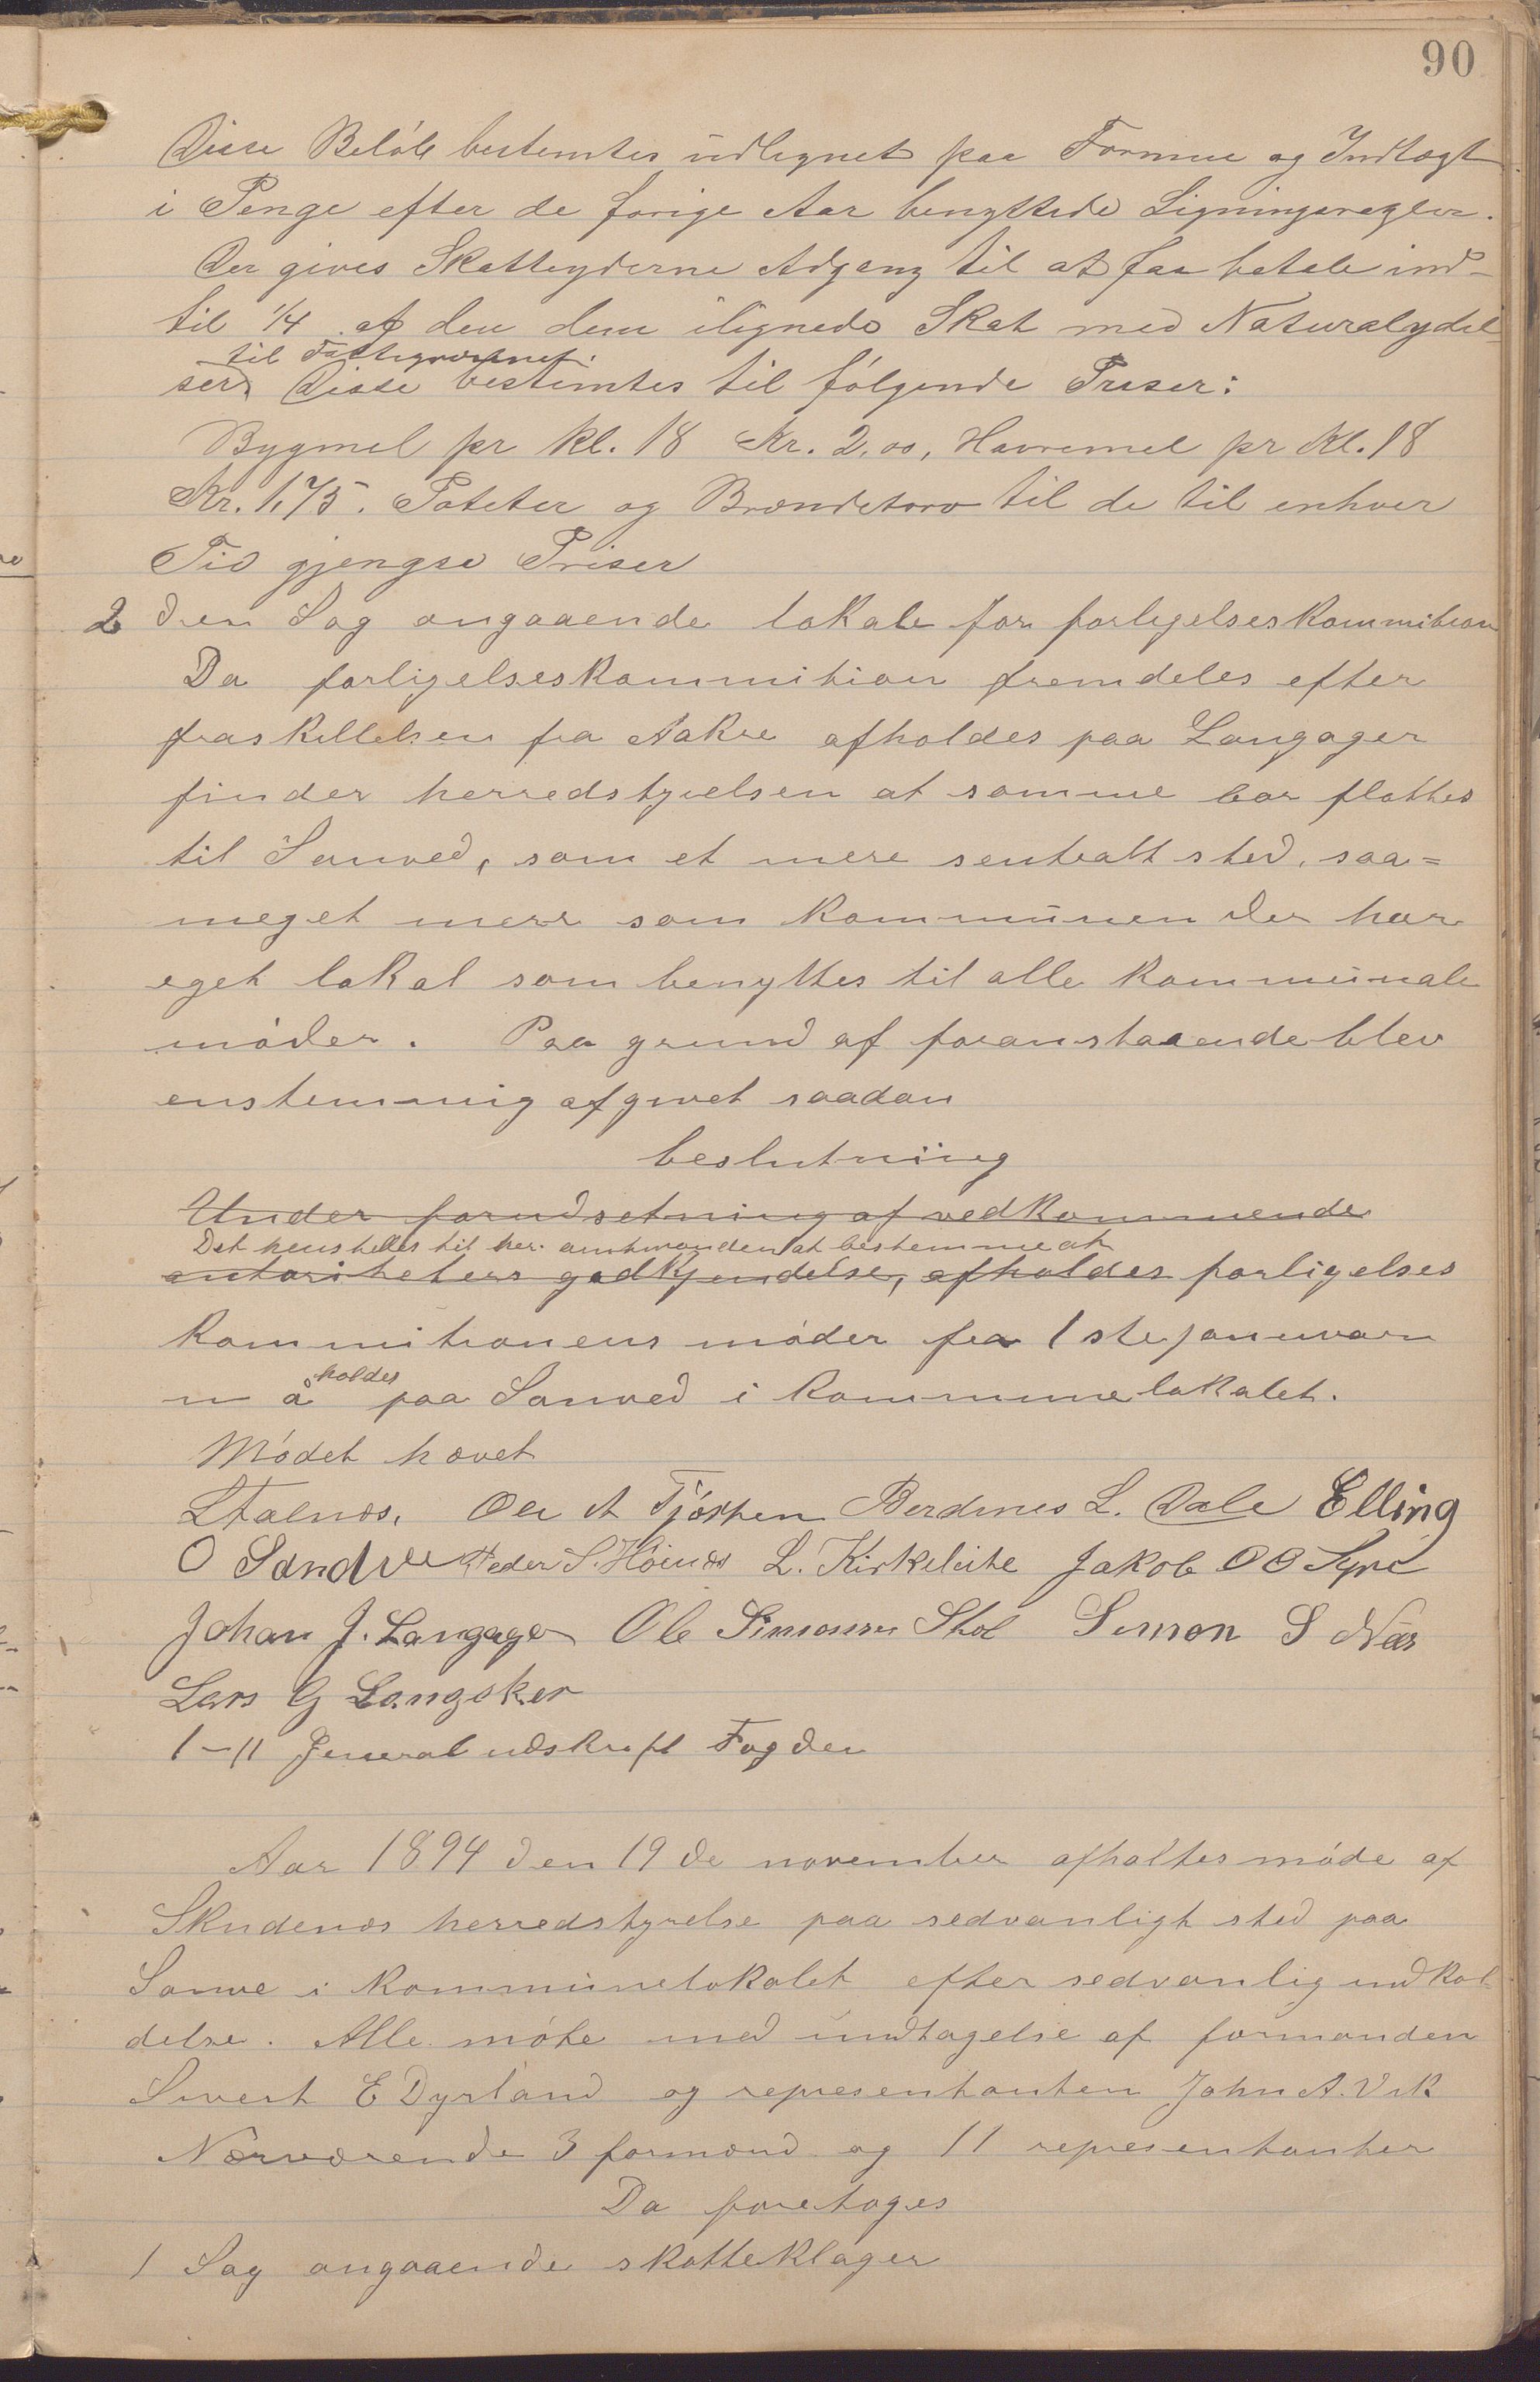 90
Disse Beløb bestemtes udlignet paa Formue og Indtægt
i Penge efter de forige Aar benyttede Ligningsregler.
Der gives Skatteyderne Adgang til at faa betale ind-
til 1/4 af den dem ilignede Skat med Naturalydel-
til Fattigvæsenet.
ser. Disse bestemtes til følgende Priser:
Bygmel pr Kl. 18 Kr. 2,00, Havremel pr Kl. 18
Kr. 1,75. Poteter og Brændetorv til de til enhver
Tid gjengse Priser
2 den Sag angaaende lokale for forligelseskommition
Da forligelseskommition fremdeles efter
fraskillelsen fra Aakre afholdes paa Langager
finder herredstyrelsen at samme bør fløttes
til Sanved, som et mere sentralt sted, saa=
meget mere som kommunen der har
eget lokal som benyttes til alle kommunale
møder. Paa grund af foranstaaende blev
enstemmig afgivet saadan
beslutning
Under forudsetning af vedkommende
Det henstilles til her. amtmanden at bestemme at
autoriteters godkjendelse, afholdes forligelses
kommitionens møder fra 1ste januvar
holdes
n å paa Sanved i kommunelokalet.
Mødet hævet
L Falnæs. Ole A Tjøsten Berdines L. Dale Elling
O Sandve Peder S. Høinæs L. Kirkeleite Jakob O O Syre
Johan J. Langager Ole Simonsen Stol Simon S Næs
Lars G Langaker
1-11 General udskrift Fogden
Aar 1894 den 19de november afholtes møde af
Skudenæs herredstyrelse paa sedvanligt sted paa
Sanve i kommunelokalet efter sedvanlig indkal-
delse. Alle møte med undtagelse af formanden
Sivert E Dyrland og representanten John A. Vik
Nærværende 3 formænd og 11 representanter
Da foretoges
1 Sag angaaende skatteklager